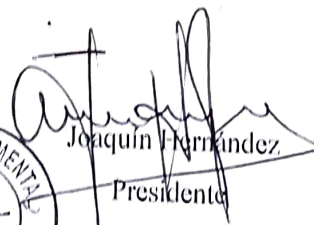 Joaquín Hernández
Presidente
MENTAL